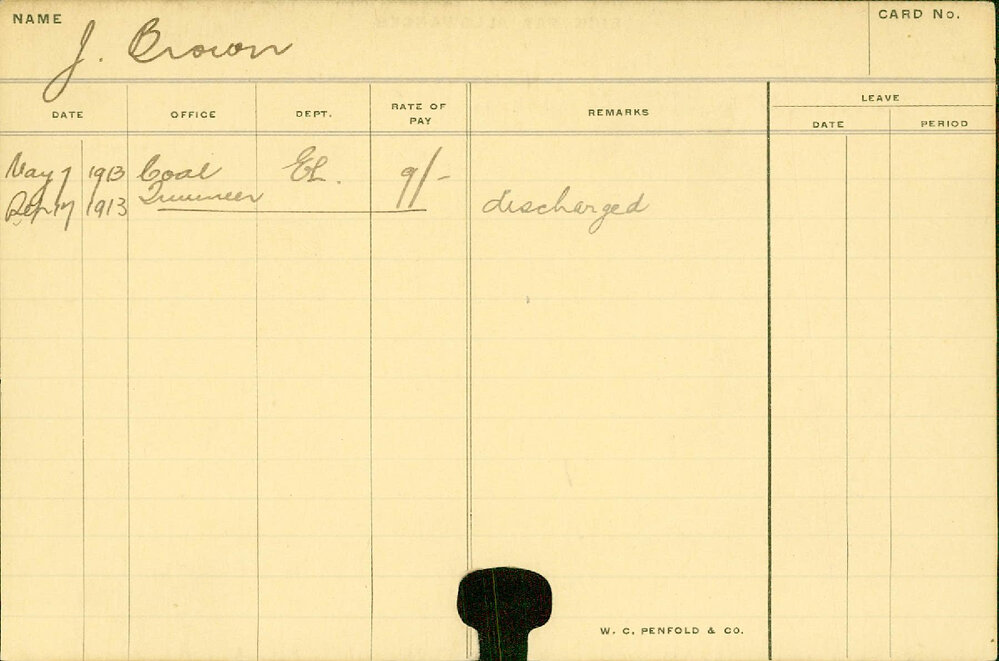 NAME J. Brown CARD No.
LEAVE
DATE OFFICE DEPT. RATE OF PAY REMARKS DATE PERIOD
May 7 1913 Coal EL. 9/-
Trimmer
Sep 17 1913 discharged
W. C. PENFOLD & CO.